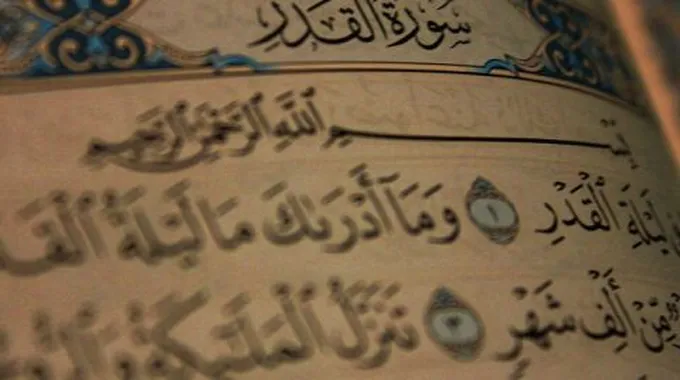 سُورَةُ الْقَدْرِ
بِسْمِ ٱللَّهِ ٱلرَّحْمَٰنِ ٱلرَّحِيمِ
لَيْلَةِ ٱلْقَدْرِ ١ وَمَآ أَدْرَىٰكَ مَا لَيْلَةُ
مِّنْ أَلْفِ شَهْرٍ ٣ تَنَزَّلُ ٱلْمَلَٰٓئِكَةُ